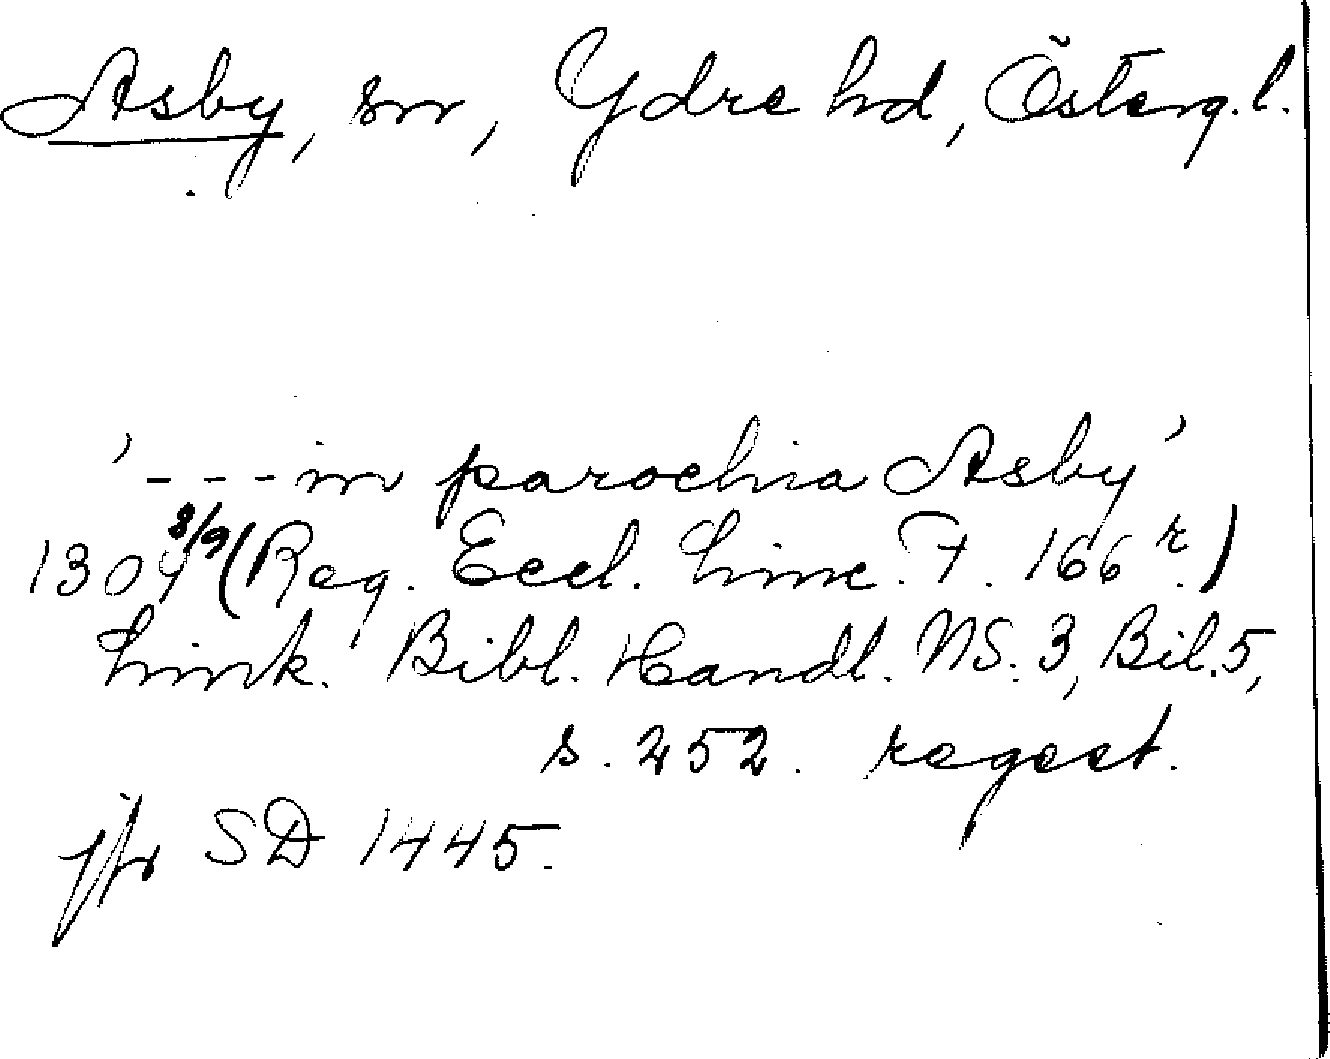 Asby, sn, Ydre hd, Österg.l.
'---in parochia Asby'
1309 8/9 (Reg. Eccl. Linc. F. 166 r.)
Link. Bibl. Handl. NS. 3, Bil. 5,
s. 252. regest.
jfr SD 1445.